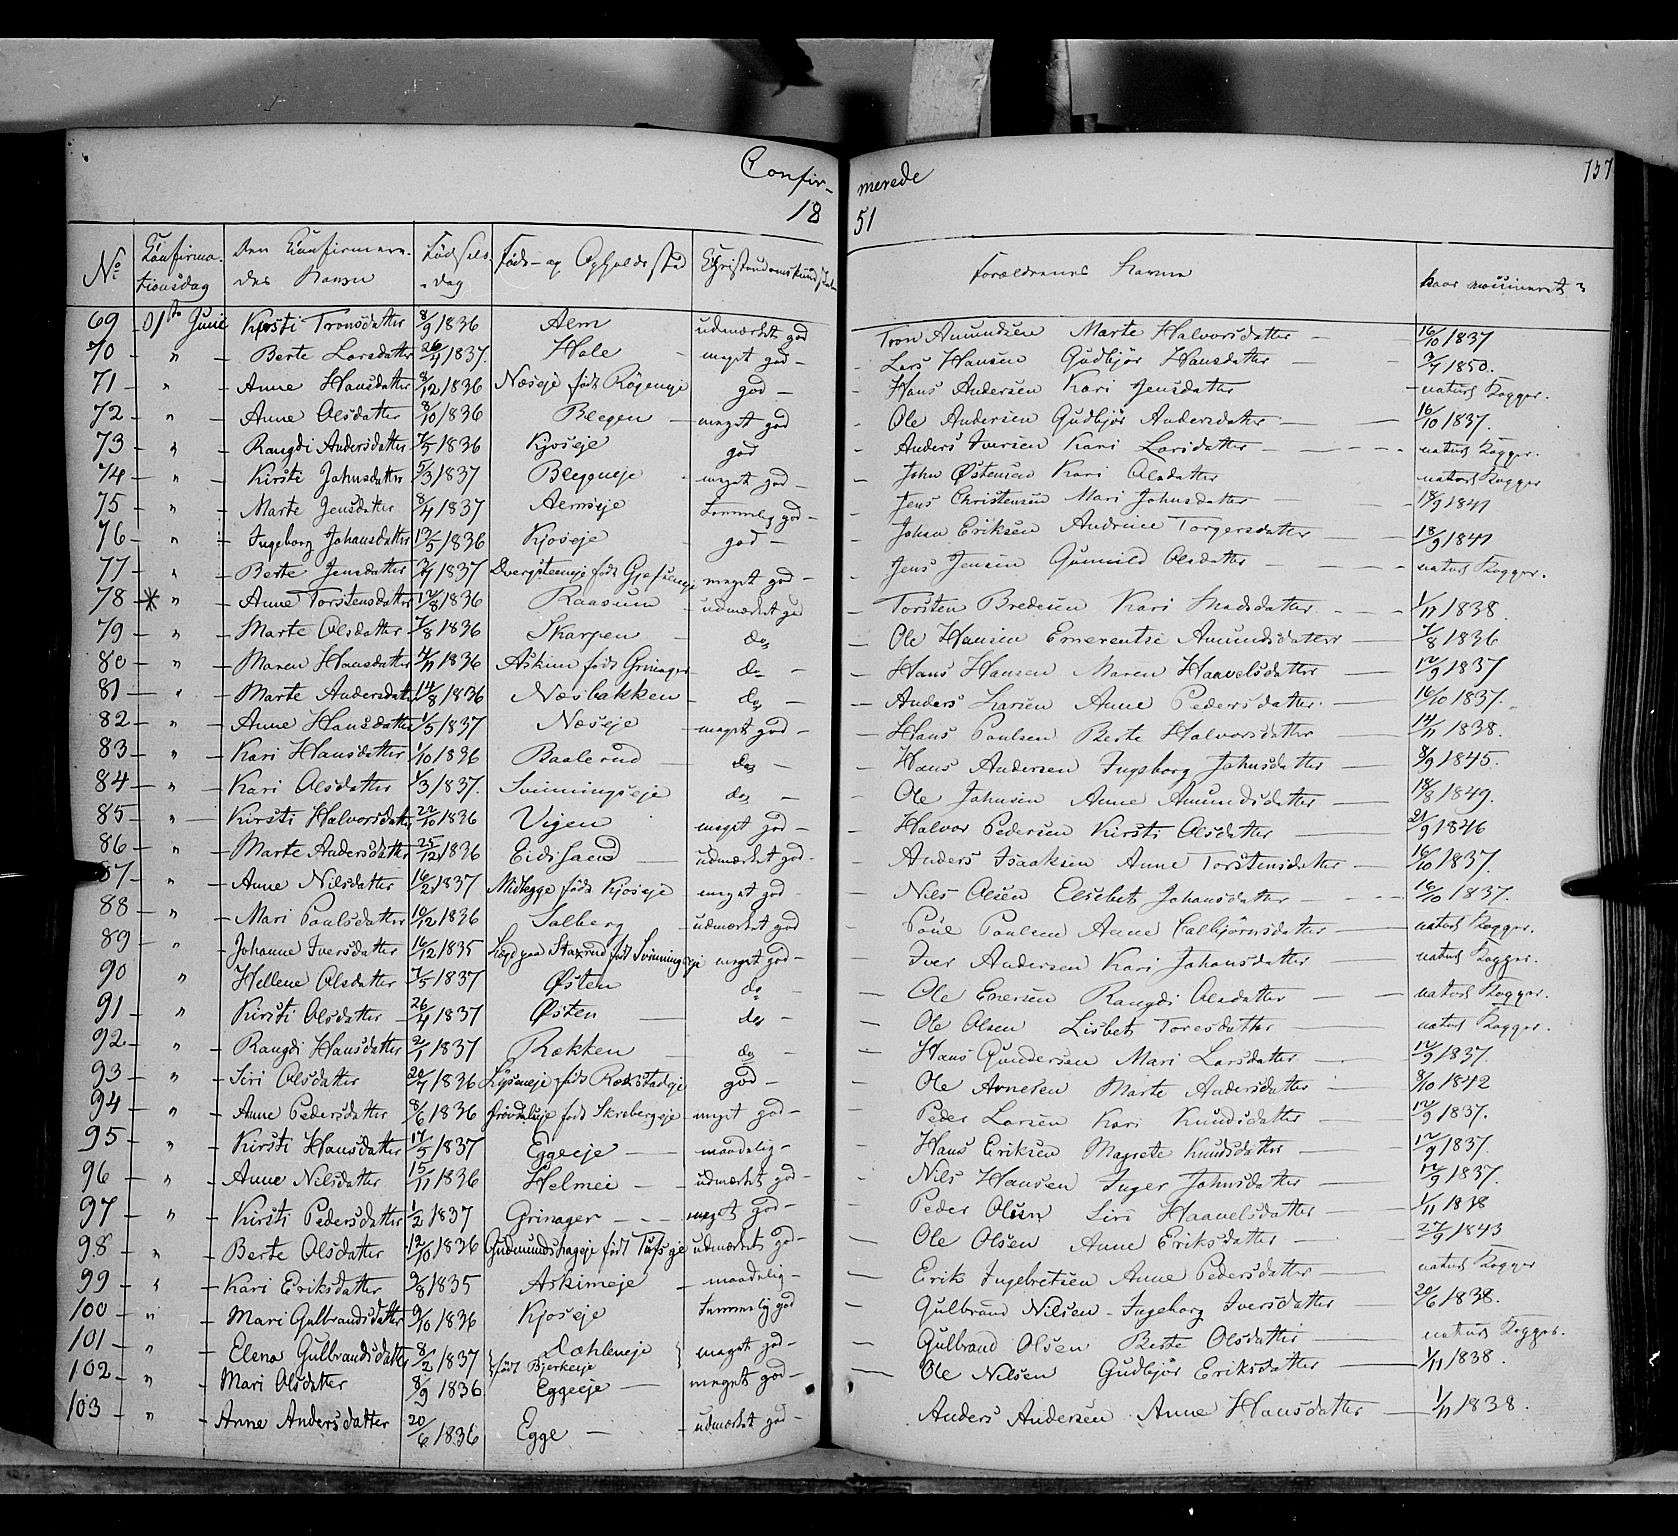 Confir- merede 137
18 51
No. Confirmationsdag Den Confirmeredes Navn Fødselsdag Føde- og Opholdssted Christendomskundskab Forældrenes Navne Naar vaccineret
69 01ste Junie Kirsti Tronsdatter 8/9 1836 Aem udmærket god Tron Amundsen Marte Halvorsdatter 16/10 1837
70 " Berte Larsdatter 26/4 1837. Hole meget god Lars Hansen Gudbjør Hansdatter 3/7 1850.
71 " Anne Hansdatter 8/12 1836 Næseje født Røgeneje god Hans Andersen Kari Jensdatter naturl Kopper.
72 " Anne Olsdatter 8/10 1836 Blegen meget god Ole Andersen Gudbjør Andersdatter 16/10 1837.
73 " Rangdi Andersdatter 7/5 1836 Kjoseje god Anders Iversen Kari Larsdatter naturl Kopper.
74 " Kirsti Johnsdatter 5/3 1837 Bleggneje meget god John Østensen Kari Olsdatter naturl Kopper
75 " Marte Jensdatter 8/4 1837 Aemseje temmelig god Jens Christensen Mari Johnsdatter 18/9 1841
76 " Ingeborg Johansdatter 13/5 1836 Kjoseje god Johan Eriksen Andrine Torgersdatter 18/9 1841
77 " Berte Jensdatter 1837 født meget god Jens Jensen Gunnild Olsdatter naturl Kopper.
78 * " Anne Torstensdatter 12/8 1836 Raasum udmærket god Torsten Bredesen Kari Madsdatter 1/11 1838.
79 " Marte Olsdatter 7/8 1836 Skarpen do Ole Hansen Emerentse Amundsdatter 7/8 1836
80 " Maren Hansdatter 4/11 1836 Askim født Grinager do Hans Hansen Maren Haavelsdatter 12/9 1837
81 " Marte Andersdatter 14/8 1836 Næsbakken do Anders Larsen Anne Pedersdatter 16/10 1837.
82 " Anne Hansdatter 1/5 1837 Næseje meget god Hans Paulsen Berte Halvorsdatter 14/11 1838.
83 " Kari Hansdatter 1/10 1836 Baalerud do Hans Andersen Ingeborg Johnsdatter 8/9 1845.
84 " Kari Olsdatter 1/3 1837. Svinningseje do Ole Johnsen Anne Amundsdatter 18/8 1849.
85 " Kirsti Halvorsdatter 22/10 1836 Vigen meget god Halvor Pedersen Kirsti Olsdatter 21/9 1846
86 " Marte Andersdatter 25/12 1836 Eidsand udmærket god Anders Isaaksen Anne Torstensdatter 16/10 1837.
87 " Anne Nilsdatter 16/2 1837 Midegge født Kjoseje meget god Nils Olsen Elsebet Johansdatter 16/10 1837.
88 " Mari Paulsdatter 10/12 1836 Solberg udmærket god Poul Poulsen Anne Calbjørnsdatter naturl Kopper.
89 " Johanne Iversdatter 16/12 1835 paa Staxrud født Svinningseje meget god Iver Andersen Kari Johansdatter naturl Kopper.
90 " Hellene Olsdatter 7/5 1837 Østen do Ole Evensen Rangdi Olsdatter naturl Kopper.
91 " Kirsti Olsdatter 26/4 1837 Østen do Ole Olsen Lisbet Toresdatter naturl Kopper.
92 " Rangdi Hansdatter 2/1 1837 Rækken do Hans Gundersen Mari Larsdatter 12/9 1837.
93 " Siri Olsdatter 20/7 1836 Lysneje født god Ole Arnesen Marte Andersdatter 8/10 1842
94 " Anne Pedersdatter 8/6 1836 født Skrebergeje meget god Peder Larsen Kari Knudsdatter 12/9 1837.
95 " Kirsti Hansdatter 17/5 1837 Eggeeje maadelig Hans Eriksen Magrete Knudsdatter 12/9 1837.
96 " Anne Nilsdatter 15/11 1836 Helmei udmærket god Nils Hansen Inger Johnsdatter 12/9 1837.
97 " Kirsti Pedersdatter 1/2 1837 Grinager meget god Peder Olsen Siri Haavelsdatter 1/11 1838
98 " Berte Olsdatter 12/10 1836 Gudmundshageje født Tufseje udmærket god Ole Olsen Anne Eriksdatter 27/9 1843
99 " Kari Eriksdatter 9/8 1835 Askimeje maadelig Erik Ingebretsen Anne Pedersdatter naturl Kopper
100 " Mari Gulbrandsdatter 9/10 1836 Kjoseje temmelig god Gulbrand Nilsen Ingeborg Iversdatter 20/6 1838.
101 " Elena Gulbrandsdatter 8/2 1837 Dæhleneje født Bjerkeeje meget god Gulbrand Olsen Berte Olsdatter naturl Kopper.
102 " Mari Olsdatter 8/9 1836 Eggeeje meget god Ole Nilsen Gudbjør Eriksdatter 1/11 1838.
103 " Anne Andersdatter 20/6 1836 Egge udmærket god Anders Andersen Anne Hansdatter 1/11 1838.